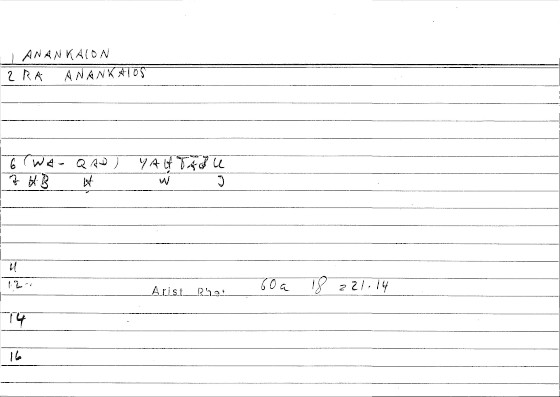 1 ANANKAION
2 RA ANANKAIOS
6 (WA- QAD) YAḤTĀǦU
7 ḤB Ḥ W J
11
12. Arist Rhet 60a 18 = 21.14
14
16